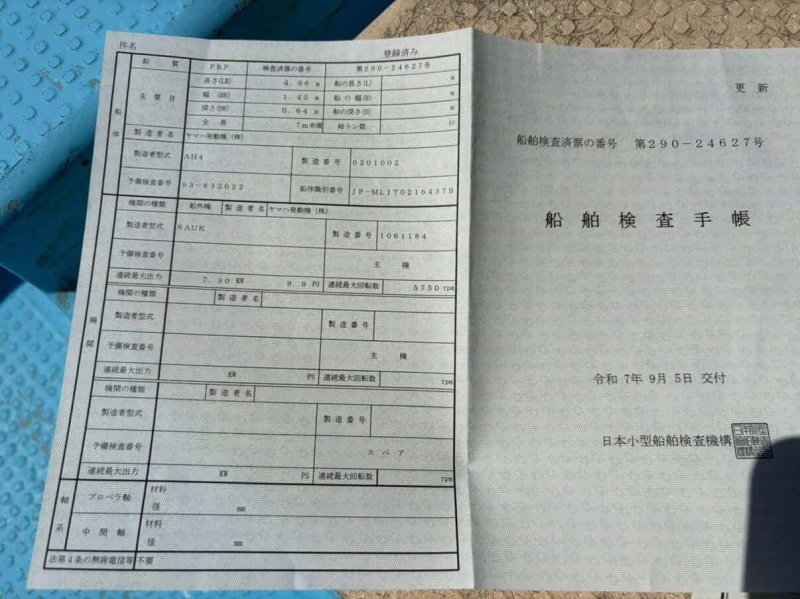 件名
登録済み
船体
船質 FRP 検査済票の番号 第290-24627号
主要目
長さ(LR) 4.96 m 船の長さ(L) m
幅 (BR) 1.45 m 船の幅(B) m
深さ(DR) 0.64 m 船の深さ(D) m
全長 7m未満 総トン数
製造者名 ヤマハ発動機(株)
製造者型式 AH4 製造番号 0201002
予備検査番号 93-832022 船体識別番号 JP-MLIT0216437B
機関
機関の種類 船外機 製造者名 ヤマハ発動機(株)
製造者型式 6AUK 製造番号 1061184
予備検査番号 主機
連続最大出力 7.30 KW 9.9 PS 連続最大回転数 5750 rpm
機関の種類 製造者名
製造者型式 製造番号
予備検査番号 主機
連続最大出力 KW PS 連続最大回転数 rpm
機関の種類 製造者名
製造者型式 製造番号
予備検査番号 スペア
連続最大出力 KW PS 連続最大回転数 rpm
軸系
プロペラ軸 材料
径 mm
中間軸 材料
径 mm
法第4条の無線電信等 不要
更新
船舶検査済票の番号 第290-24627号
船舶検査手帳
令和 7年 9月 5日 交付
日本小型船舶検査機構